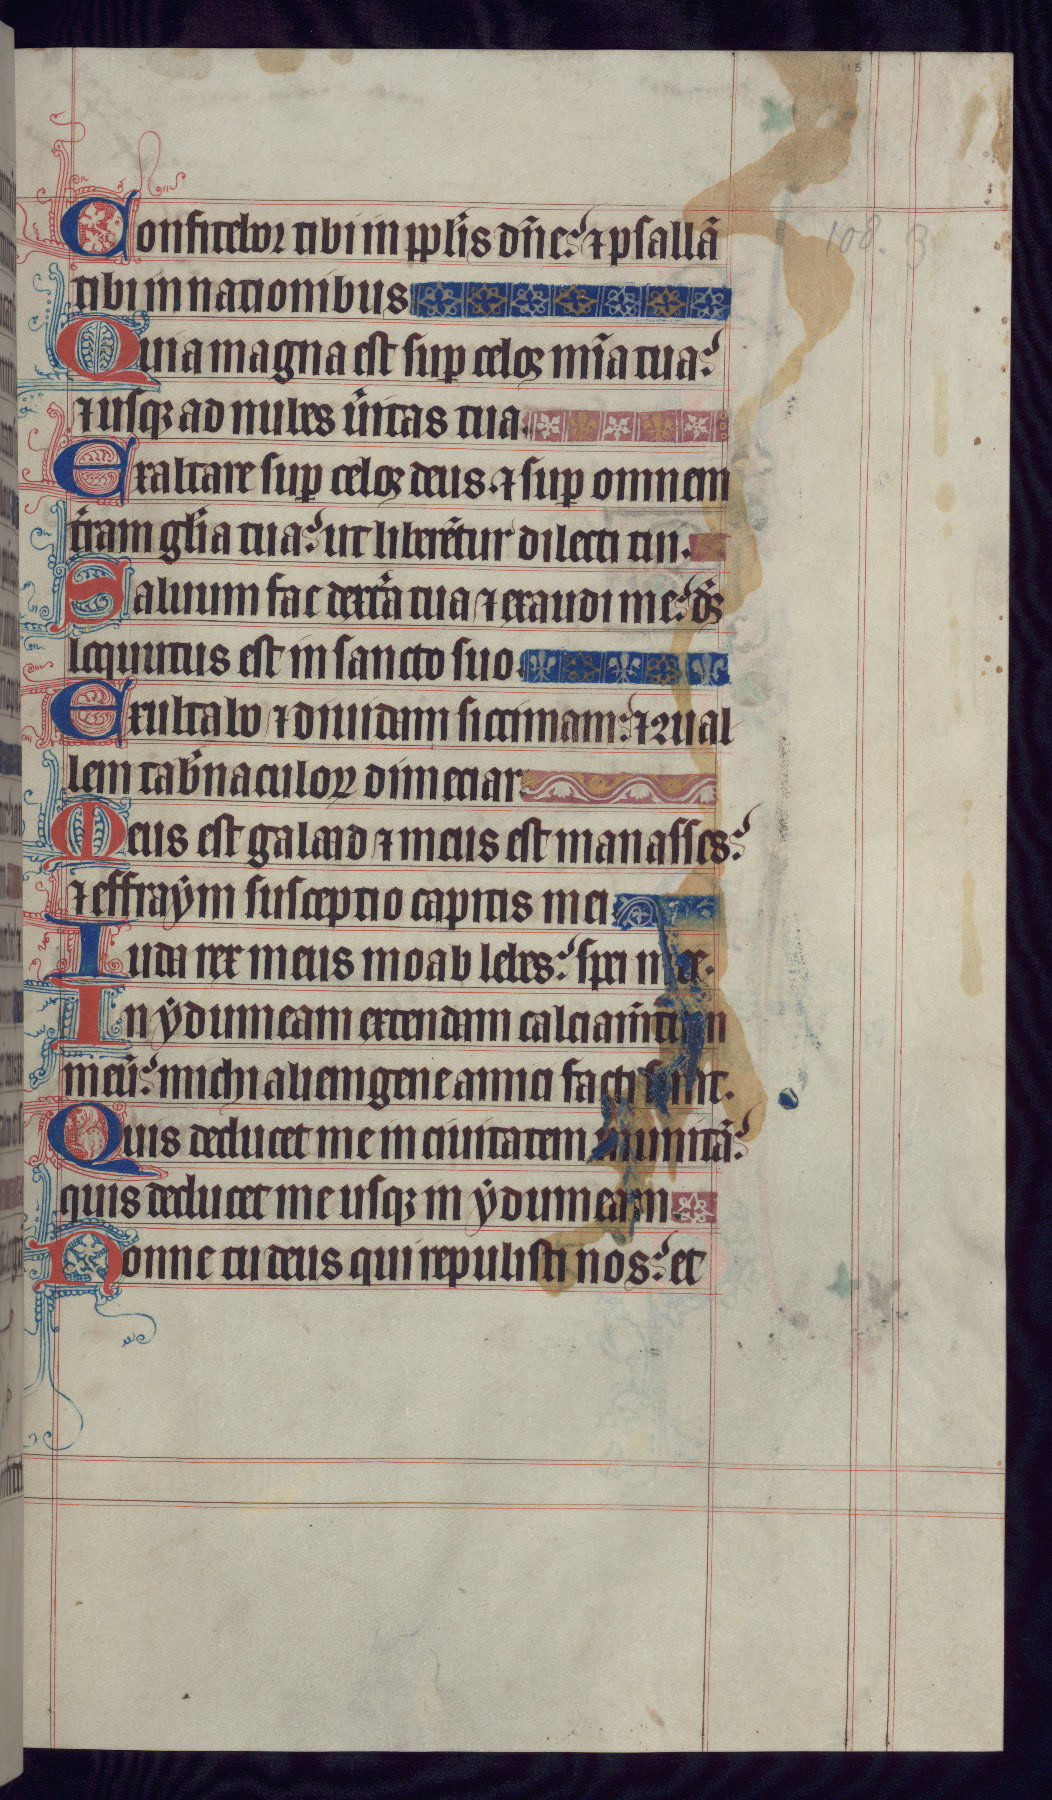 108. 3
Confitebor tibi in pplis dn̄e: ⁊ psallā
tibi in nationibus
Quia magna est sup celoꝝ mīa tua:
⁊ usqꝫ ad nubes ūitas tua.
Exaltare sup celoꝝ deus. ⁊ sup omnem
t̄ram glīa tua: ut liberētur dilecti tui.
Saluum fac dext̄a tua ⁊ exaudi me: ds̄
locuutus est in sancto suo.
Exultabo ⁊ diuidam siccimam: ⁊ ꝯual
lem tab̄naculoꝝ dimeciar.
Meus est galaad ⁊ meus est manasses:
⁊ effraẏm susceptio capitis mei
Iuda rex meus moab lebes: spei mee.
In ẏdumeam extendam calciam̄tum
meū: michi alienigene amici facti sunt.
Quis deducet me in ciuitatem munitā:
quis deducet me usqꝫ in ẏdumeam
Nonne tu deus qui repulisti nos: et